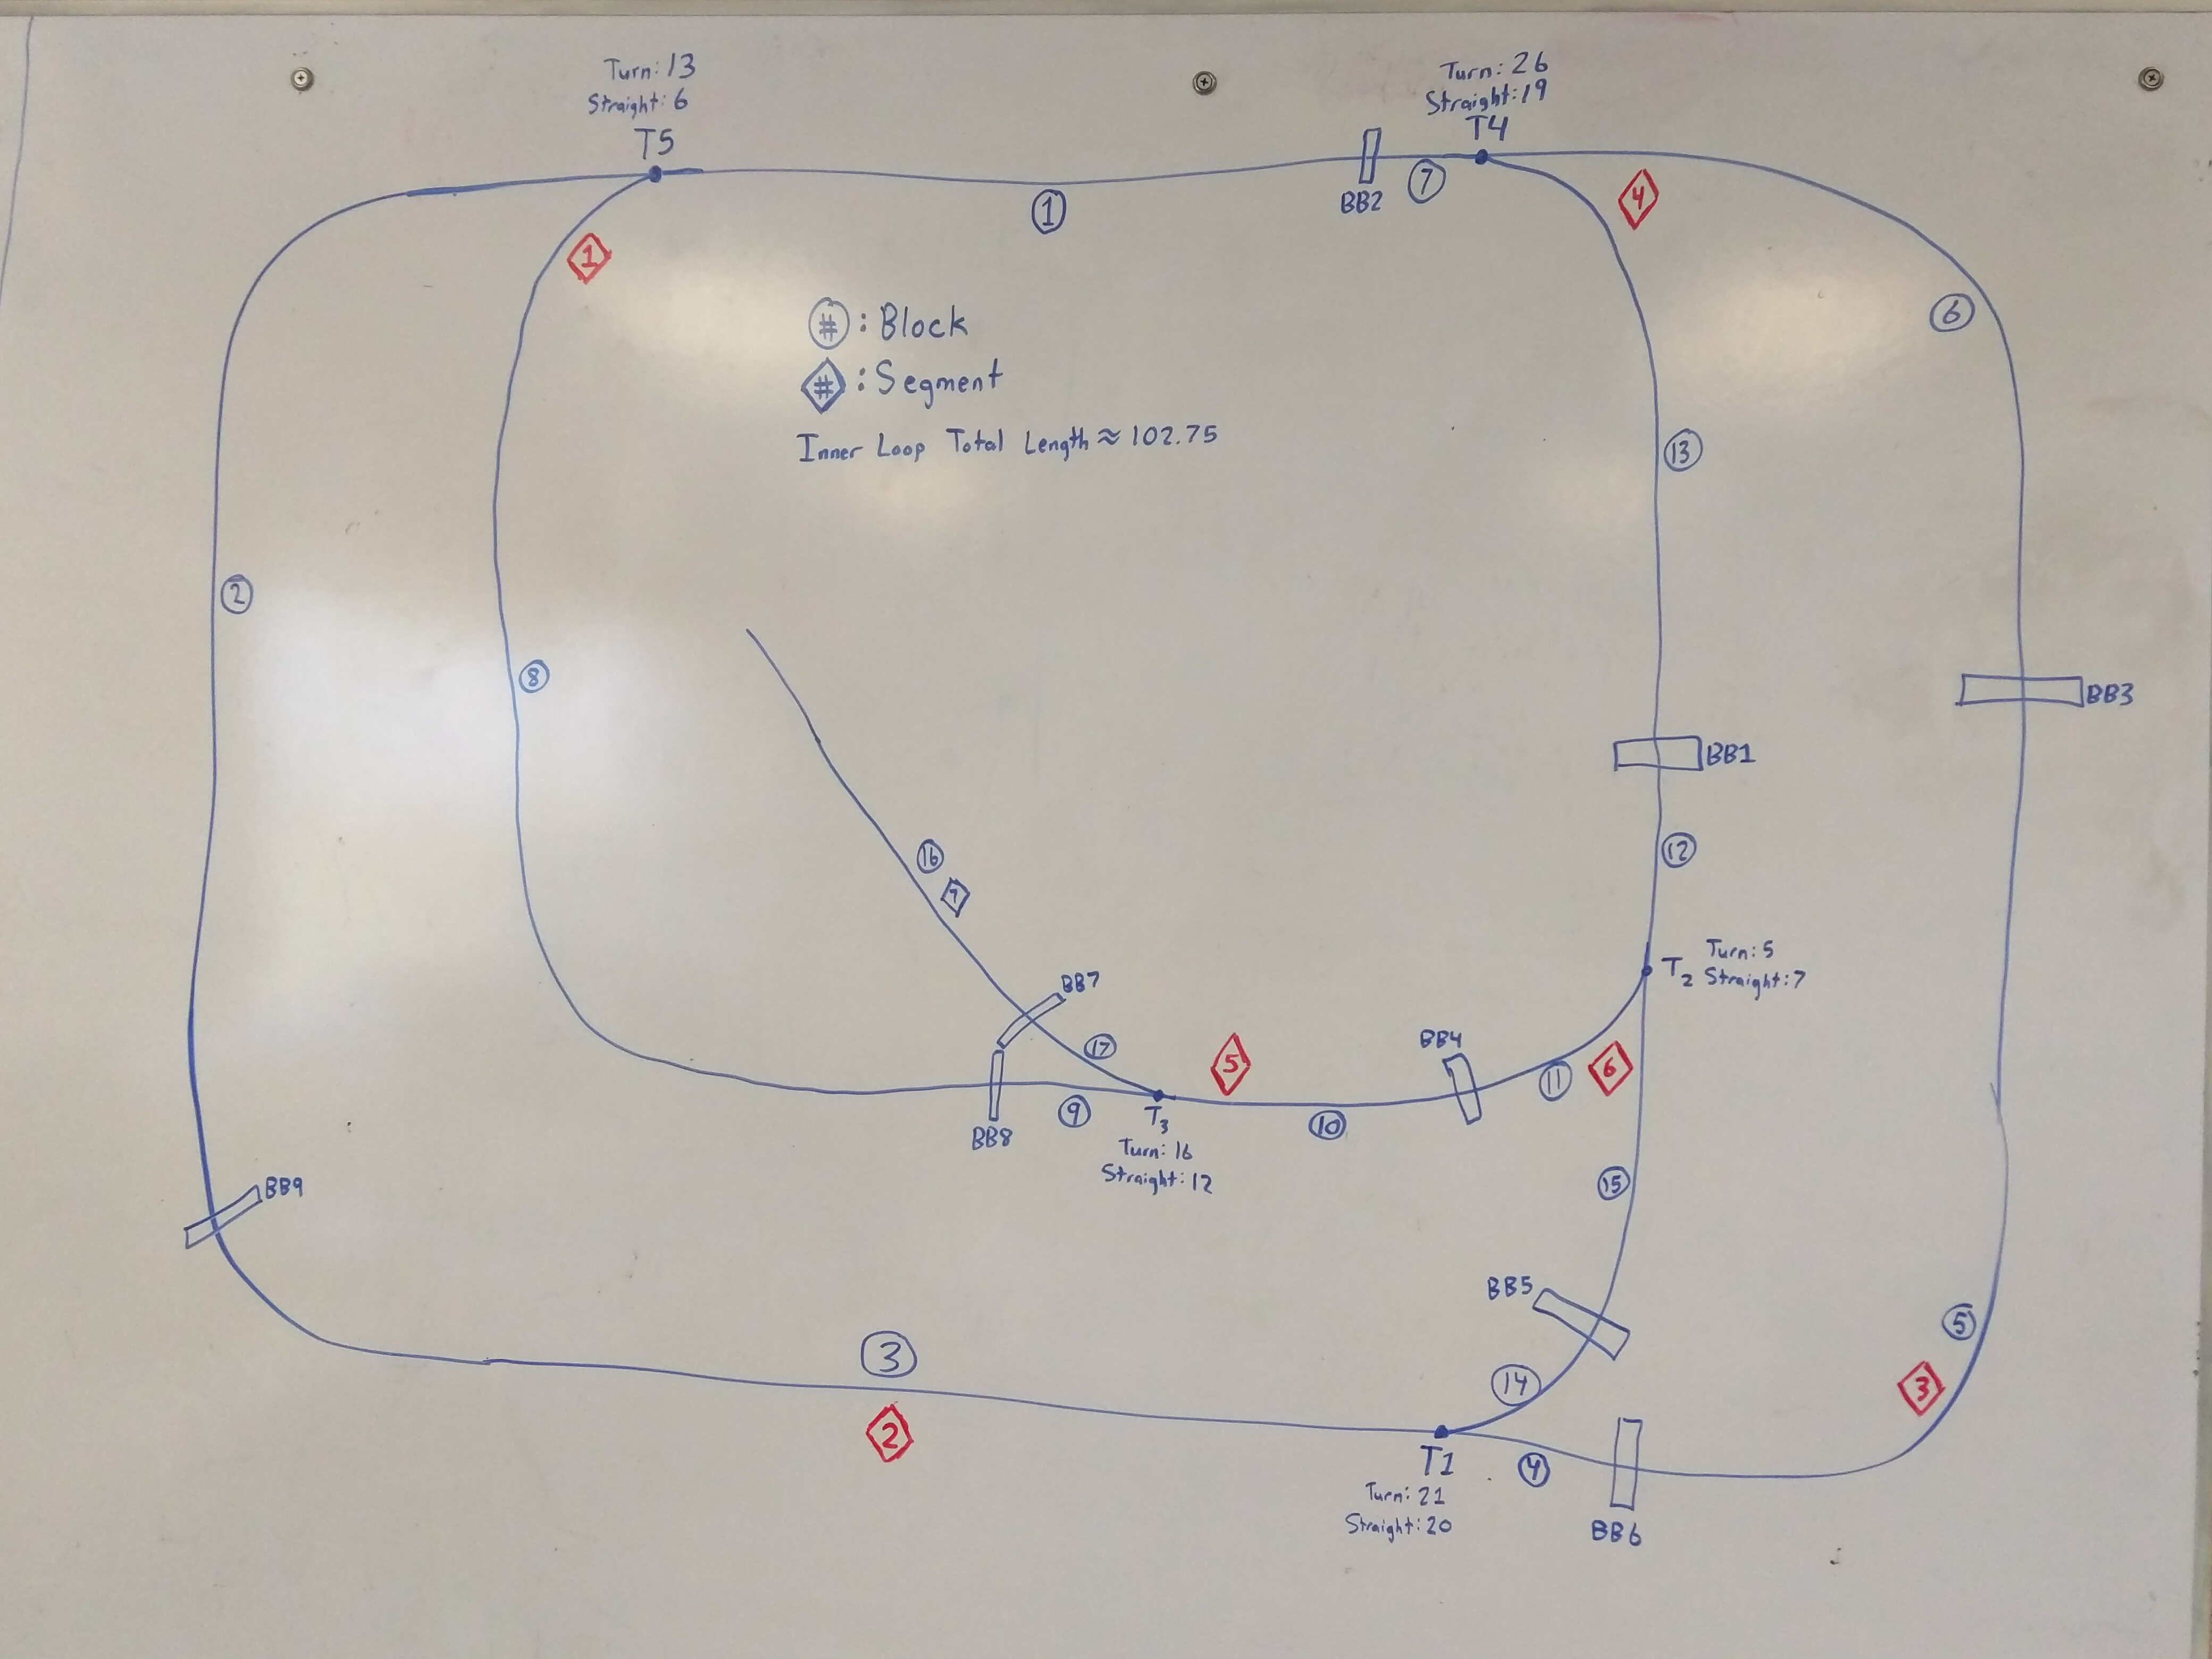 Turn: 13
Straight: 6
T5
Turn: 26
Straight: 19
T4
BB2
7
4
1
1
6
#: Block
#: Segment
Inner Loop Total Length ≈ 102.75
13
2
8
BB3
BB1
12
16
T2
Turn: 5
Straight: 7
BB7
17
5
BB4
11
6
9
BB8
T3
Turn: 16
Straight: 12
10
15
BB9
BB5
5
3
14
3
2
T1
Turn: 21
Straight: 20
4
BB6